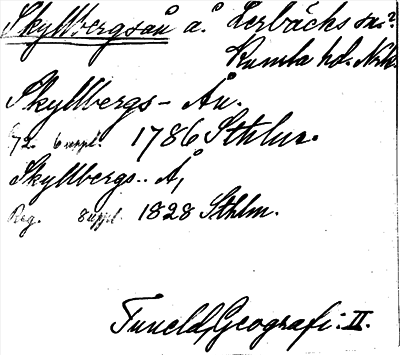 Skyllbergsån å. Lerbäcks sn.?
Kumla hd. Nrk.
Skyllbergs-Ån.
72. 6 uppl. 1786 Sthlm.
Skyllbergs-Å,
Reg. 8 uppl. 1828 Sthlm.
Tuneld, Geografi. II.